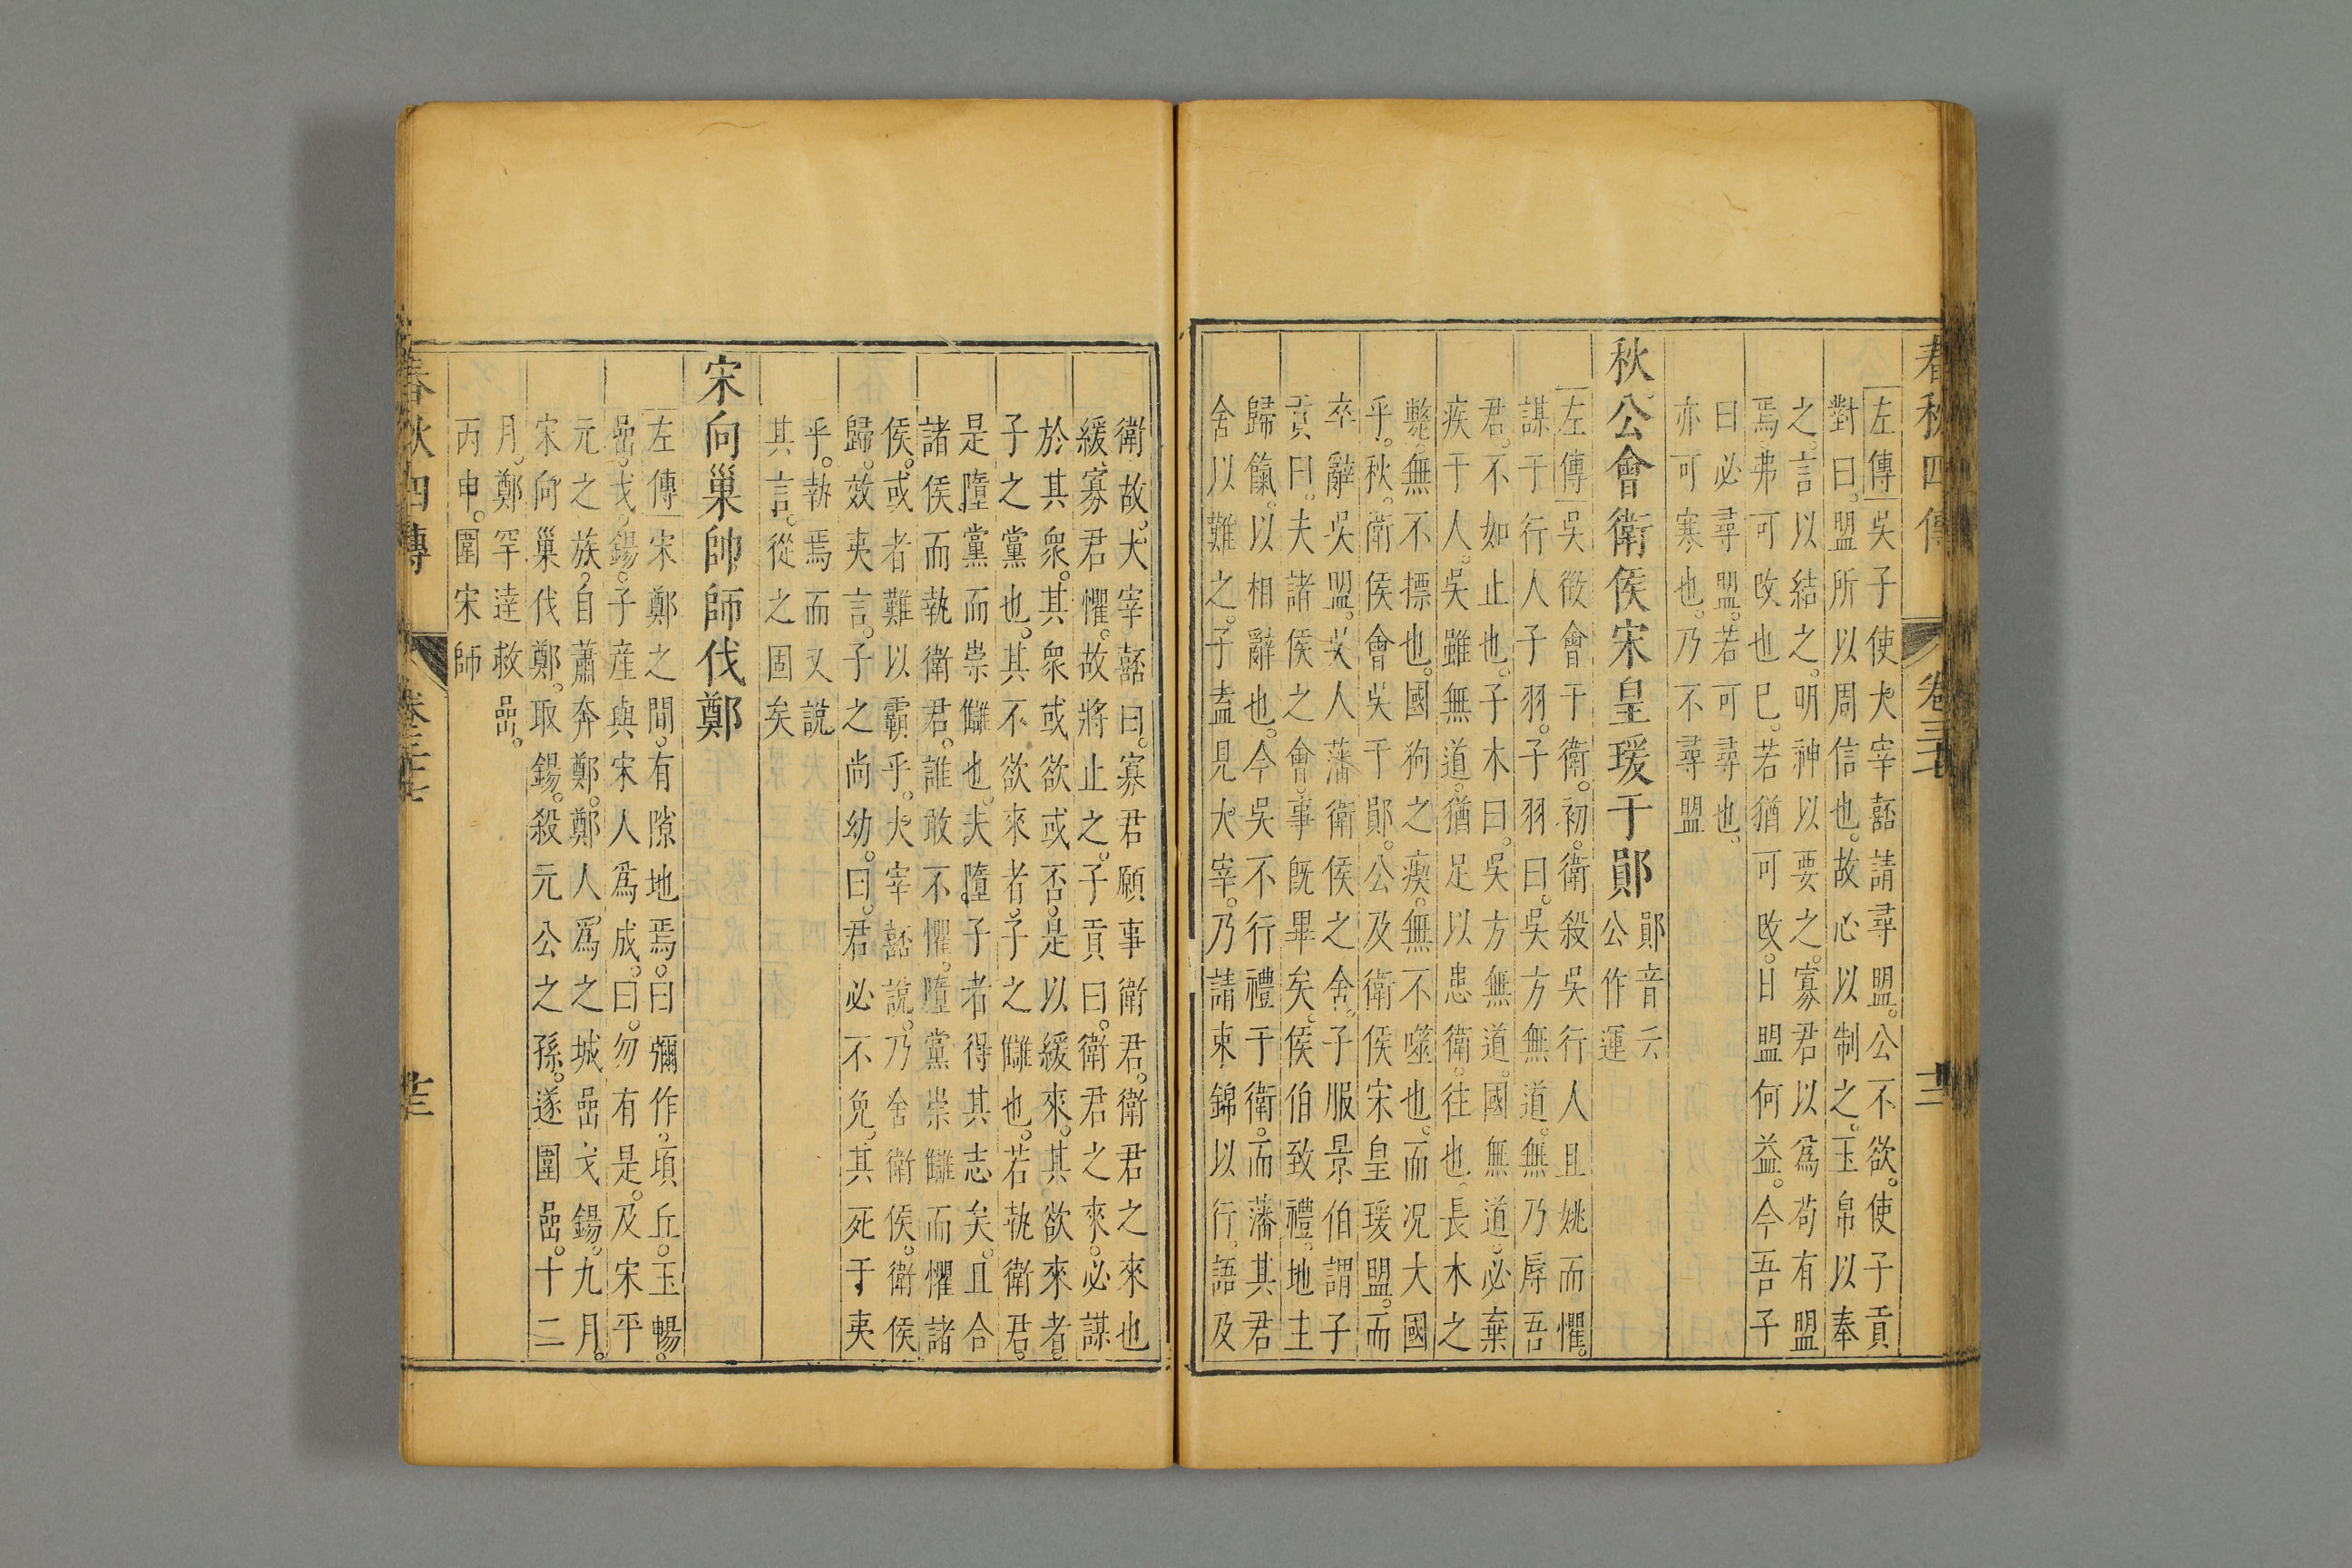 春秋四傳 卷三十七
左傳吳子使大宰嚭請尋盟。公不欲。使子貢
對曰。盟所以周信也。故心以制之。玉帛以奉
之。言以結之。明神以要之。寡君以爲苟有盟
焉。弗可改也已。若猶可改。日盟何益。今吾子
曰必尋盟。若可尋也。
亦可寒也。乃不尋盟
秋。公會衛侯宋皇瑗于鄖
鄖音云
公作運
左傳吳徵會于衛。初。衛殺吳行人且姚而懼。
謀于行人子羽。子羽曰。吳方無道。無乃辱吾
君。不如止也。子木曰。吳方無道。國無道。必棄
疾于人。吳雖無道。猶足以患衛。往也。長木之
斃。無不摽也。國狗之瘈。無不噬也。而况大國
乎。秋。衛侯會吳于鄖。公及衛侯宋皇瑗盟。而
卒辭吳盟。吳人藩衛侯之舍。子服景伯謂子
貢曰。夫諸侯之會。事既畢矣。侯伯致禮。地主
歸餼。以相辭也。今吳不行禮于衛。而藩其君
舍以難之。子盍見大宰。乃請束錦以行。語及
衛故。大宰嚭曰。寡君願事衛君。衛君之來也
緩。寡君懼。故將止之。子貢曰。衛君之來。必謀
於其衆。其衆或欲或否。是以緩來。其欲來者。
子之黨也。其不欲來者。子之讎也。若執衛君。
是墮黨而崇讎也。夫墮子者得其志矣。且合
諸侯而執衛君。誰敢不懼。墮黨崇讎而懼諸
侯。或者難以霸乎。大宰嚭說。乃舍衛侯。衛侯
歸。效夷言。子之尚幼。曰。君必不免。其死于夷
乎。執焉而又說
其言。從之固矣
宋向巢帥師伐鄭
左傳宋鄭之間。有隙地焉。曰彌作。頃丘。玉暢。
嵒。戈。鍚。子産與宋人爲成。曰。勿有是。及宋平
元之族。自蕭奔鄭。鄭人爲之城嵒戈鍚。九月。
宋向巢伐鄭。取鍚。殺元公之孫。遂圍嵒。十二
月。鄭罕達救嵒。
丙申。圍宋師
春秋四傳 卷三十七